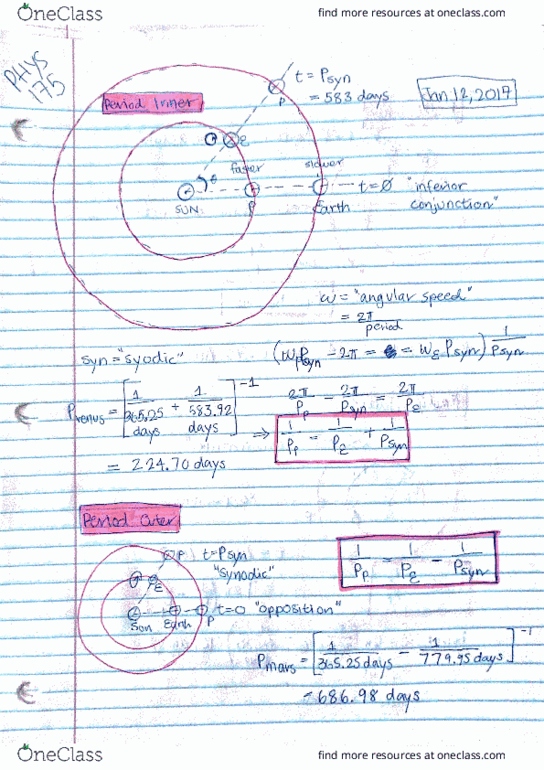 OneClass
find more resources at oneclass.com
PHYS 175
Jan 12, 2017
Period Inner
t = Psyn
= 583 days
P
θ
ε
faster
slower
SUN
P
Earth
t=0 "inferior conjunction"
ω = "angular speed"
= 2π / period
syn = "syodic"
(ωp Psyn - 2π = = ωε Psyn) 1/Psyn
Pvenus = [1/365.25 days + 1/583.92 days]^-1
2π/Pp - 2π/Psyn = 2π/Pε
⇒ 1/Pp = 1/Pε + 1/Psyn
= 224.70 days
Period Outer
P
t=Psyn
"synodic"
θ
ε
Sun
Earth
P
t=0 "opposition"
1/Pp = 1/Pε - 1/Psyn
Pmars = [1/365.25 days - 1/779.95 days]^-1
= 686.98 days
OneClass
find more resources at oneclass.com